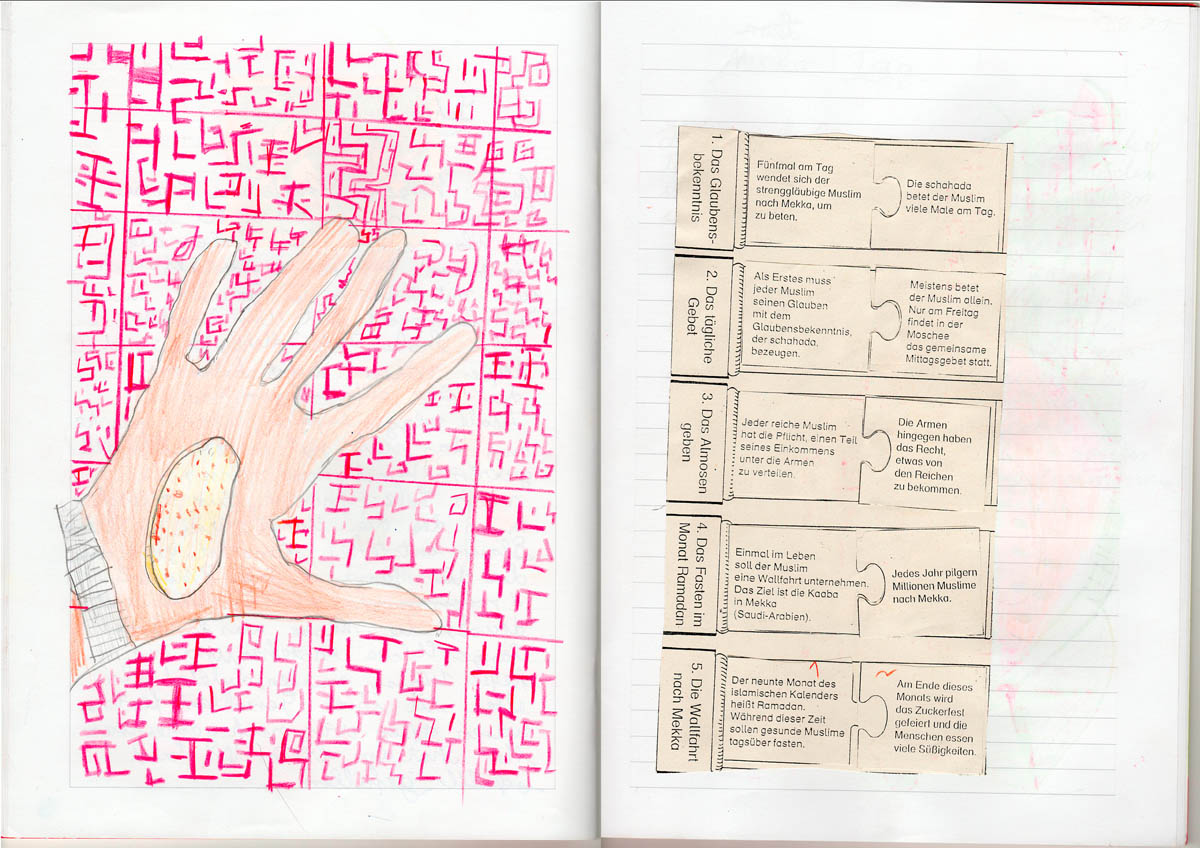 1. Das Glaubens-
bekenntnis
Fünfmal am Tag
wendet sich der
strenggläubige Muslim
nach Mekka, um
zu beten.
Die schahada
betet der Muslim
viele Male am Tag.
2. Das tägliche
Gebet
Als Erstes muss
jeder Muslim
seinen Glauben
mit dem
Glaubensbekenntnis,
der schahada,
bezeugen.
Meistens betet
der Muslim allein.
Nur am Freitag
findet in der
Moschee
das gemeinsame
Mittagsgebet statt.
3. Das Almosen
geben
Jeder reiche Muslim
hat die Pflicht, einen Teil
seines Einkommens
unter die Armen
zu verteilen.
Die Armen
hingegen haben
das Recht,
etwas von
den Reichen
zu bekommen.
4. Das Fasten im
Monat Ramadan
Einmal im Leben
soll der Muslim
eine Wallfahrt unternehmen.
Das Ziel ist die Kaaba
in Mekka
(Saudi-Arabien).
Jedes Jahr pilgern
Millionen Muslime
nach Mekka.
5. Die Wallfahrt
nach Mekka
Der neunte Monat des
islamischen Kalenders
heißt Ramadan.
Während dieser Zeit
sollen gesunde Muslime
tagsüber fasten.
Am Ende dieses
Monats wird
das Zuckerfest
gefeiert und die
Menschen essen
viele Süßigkeiten.